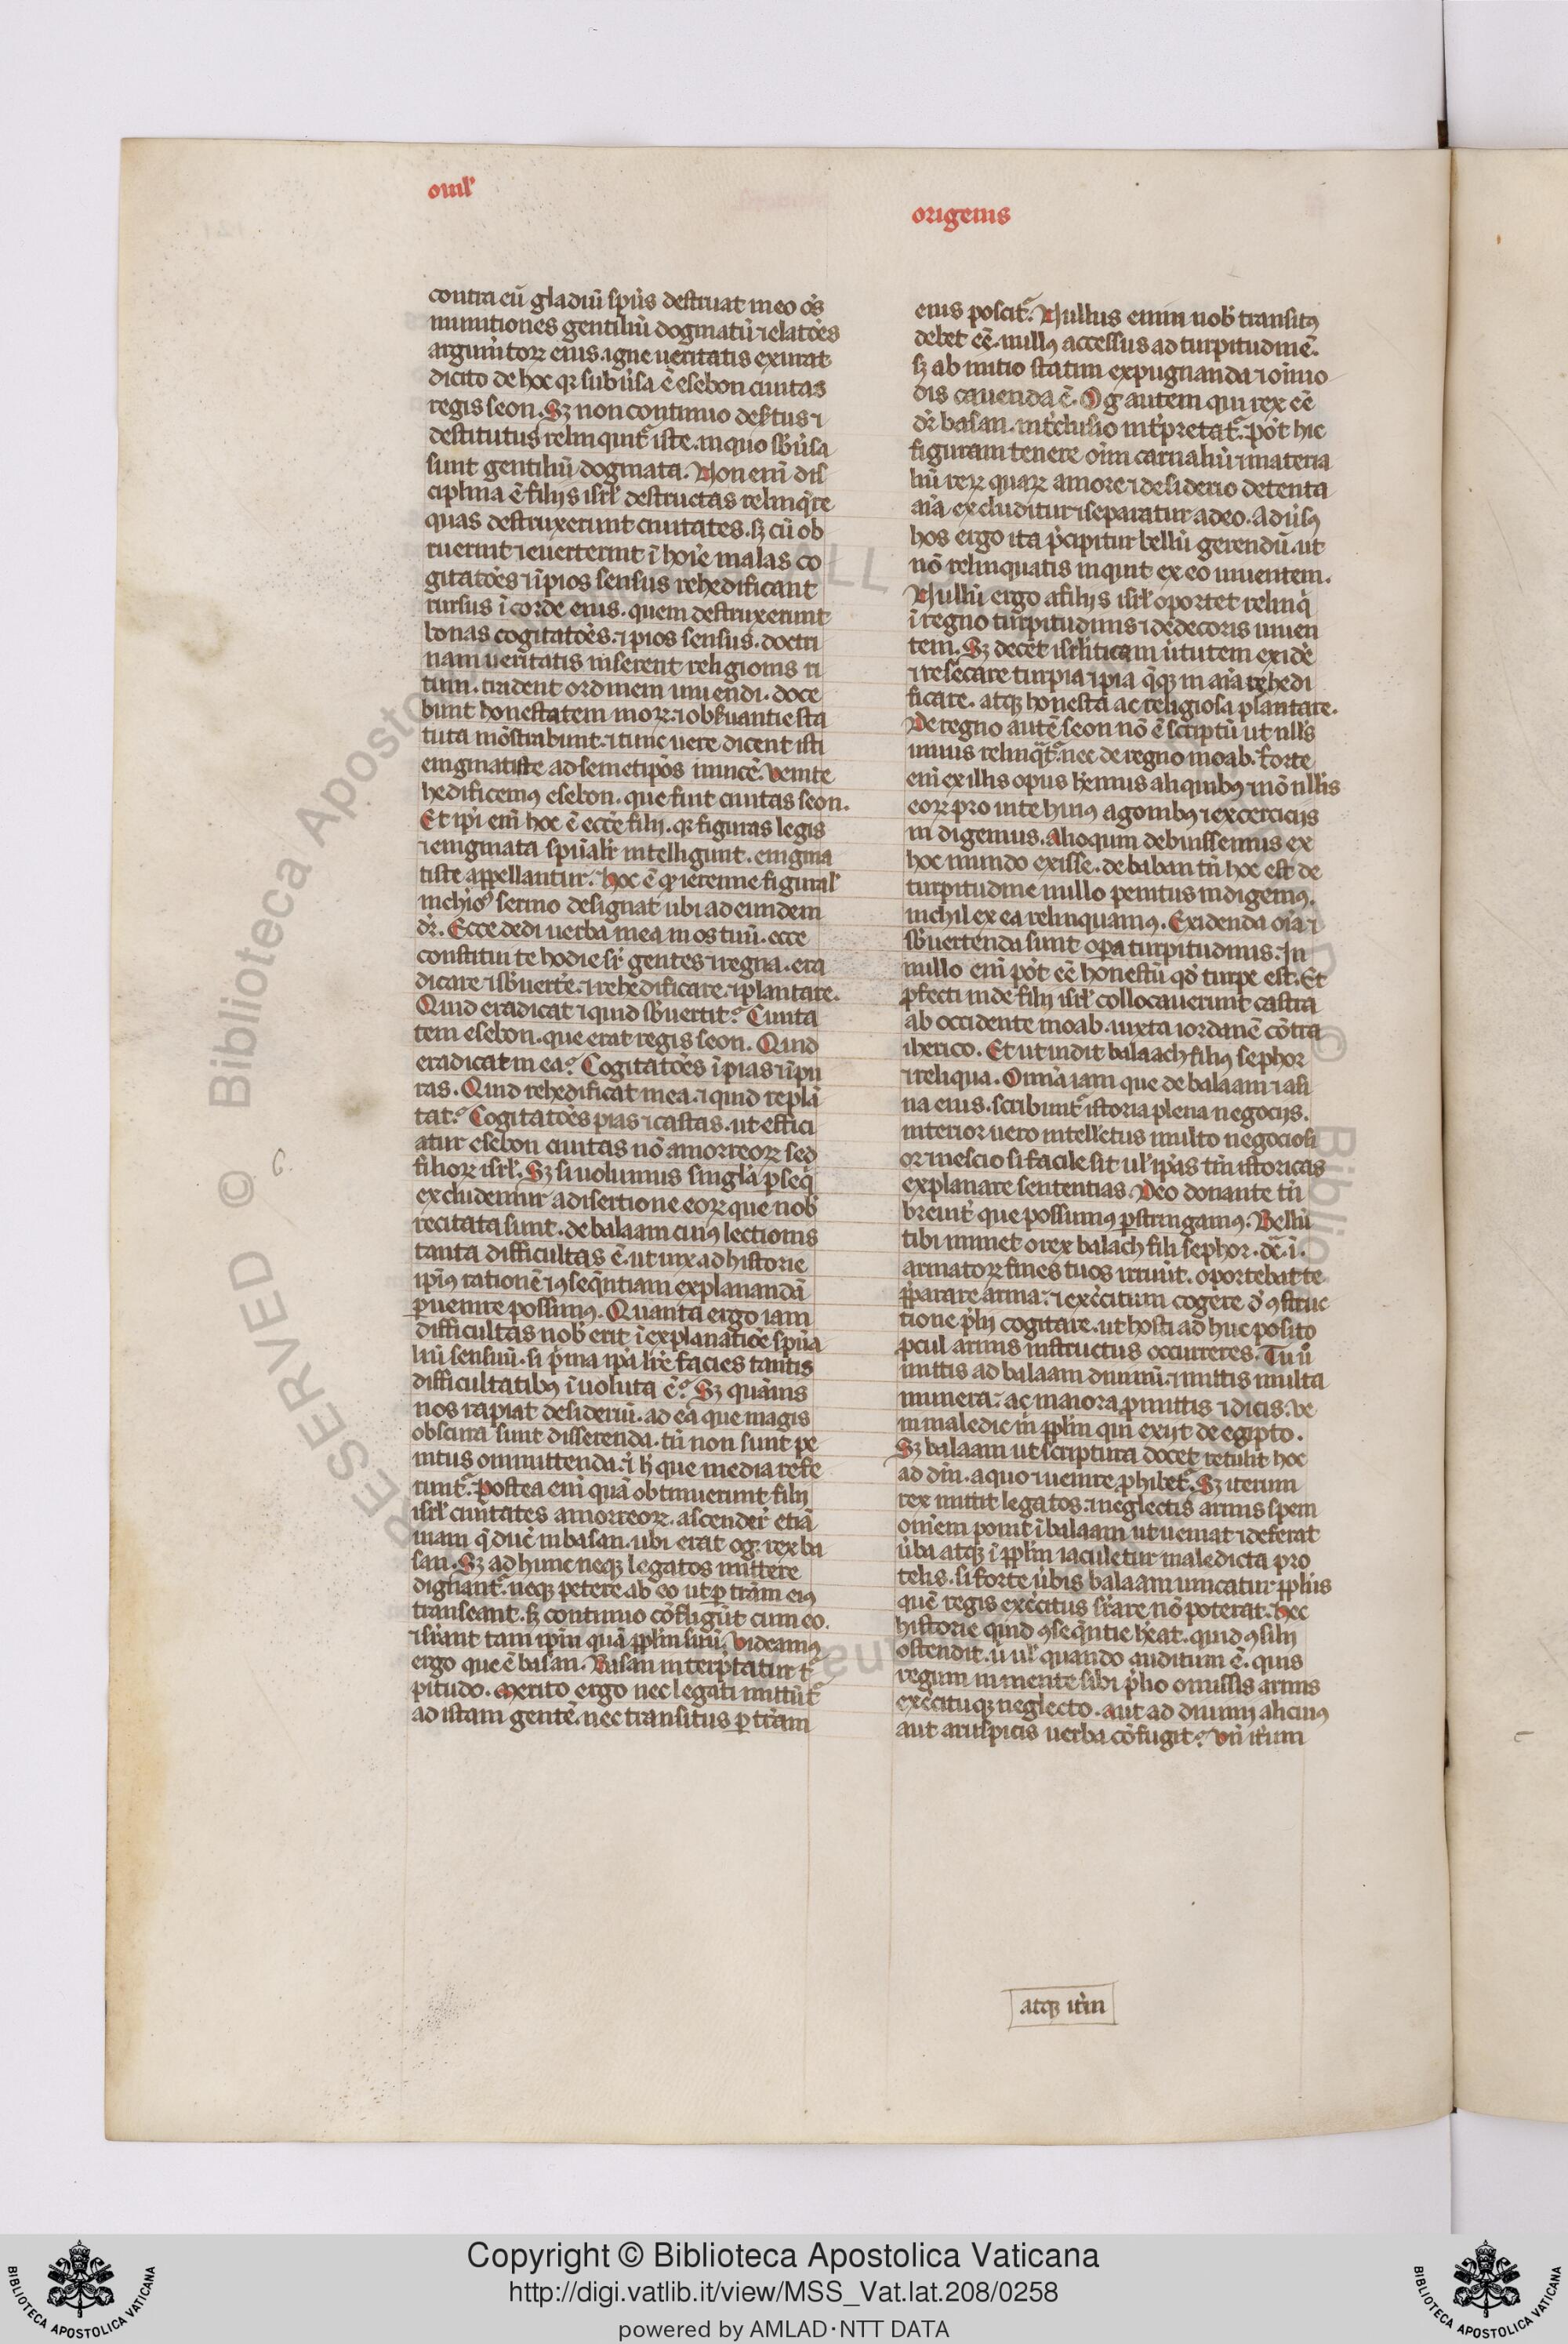 omĺ
origenis
contra eũ gladiũ sṕus destruat in eo oḿs
munitiones gentiliũ dogmatũ ⁊ elatões
argumẽtoꝝ eius. igne ueritatis exurat
dicito de hoc qꝛ subúsa ẽ esebon ciuitas
regis seon. Sꝫ non continuo deſertus ⁊
destitutus relinquit᷑ iste. in quo sb́úsa
sunt gentiliũ dogmata. Non eni᷑ dis
ciplina ẽ filijs isrĺ destructas relinq̃re
quas destruxerunt ciuitates. sꝫ cũ ob
ruerint ⁊ euerterint ĩ hoı̃e malas co
gitatões ⁊ ı̃pios sensus rehedificant
rursus ĩ corde eius. quem destruxerunt
bonas cogitatões. ⁊ pios sensus. doctri
nam ueritatis inserent religionis ri
tum. tradent ordinem uiuendi. doce
bunt honestatem moꝝ. ⁊ obſeruantie sta
tuta mõstrabunt. ⁊ tunc uere dicent isti
enigmatiste ad semetipõs inuicẽ. Venite
hedificemꝰ esebon. que fuit ciuitas seon.
Et ipı̃ eni᷑ hoc ẽ ecc̃e filij. qꝛ figuras legis
⁊ enigmata spũalr̃ intelligunt. enigma
tiste appellantur. hoc ẽ qď ieremie figuralr̃
sermo designat ubi ad eundem
dr̃. Ecce dedi uerba mea in os tuũ. ecce
constitui te hodie sr̃ gentes ⁊ regna. era
dicare ⁊ sb́uertẽ. ⁊ rehedificare. ⁊ plantare.
Quid eradicat ⁊ quid sb́uertit? Ciuita
tem esebon. que erat regis seon. Quid
eradicat in ea? Cogitatões ı̃pias ⁊ ı̃pu
ras. Quid rehedificat in ea. ⁊ quid replã
tat? Cogitatões pias ⁊ castas. ut effici
atur esebon ciuitas nõ amorreoꝝ sed
filioꝝ isrĺ. Sꝫ si uolumus singla ꝑseq̃
excludemur a disertione eoꝝ que nob́
recitata sunt. de balaam cuiꝰ lectionis
tanta difficultas ẽ. ut uix ad historie
ipı̃ꝰ rationẽ ⁊ ꝯseq̃ntiam explanandã
ꝑuenire possimꝰ. Quanta ergo iam
difficultas nob́ erit ĩ explanatiõe spũa
liũ sensuũ. si p̃ma ip̃a lr̃e facies tantis
difficultatibꝰ ĩuoluta ẽ? Sꝫ quãuis
nos rapiat desideriũ. ad ea que magis
obscura sunt disserenda. tñ non sunt pe
nitus ommittenda. ⁊ h̃ que media refe
runt᷑. Postea eni᷑ quã obtinuerunt filij
isrĺ ciuitates amorreoꝝ. ascender̃ etiã
uiam q̃ ducẽ in basan. ubi erat og. rex ba
san. Sꝫ ad hunc neqꝫ legatos mittere
dignant᷑. neqꝫ petere ab eo ut ꝑ trãm eiꝰ
transeant. sꝫ continuo cõfligũt cum eo.
⁊ sr̃ant tam ipm̃ quã pplm̃ suũ. Videamꝰ
ergo que ẽ basan. Basan interp̃tatur t᷑
pitudo. Merito ergo nec legati mittũt᷑
ad istam gentẽ. nec transitus ꝑ trãm
eius poscit᷑. Nullus enim nob́ transitꝰ
debet eẽ. nullꝰ accessus ad turpitudinẽ.
sꝫ ab initio statim expugnanda ⁊ oı̃mo
dis cauenda ẽ. Og autem qui rex eẽ
dr̃ basan. int́clusio int́pretat᷑. põt hic
figuram tenere oı̃m carnaliũ ⁊ materia
liũ reꝝ quaꝝ amore ⁊ desiderio detenta
aı̃a excluditur ⁊ separatur a deo. Adúsꝰ
hos ergo ita p̃cipitur bellũ gerendũ. ut
nõ relinquatis inquit ex eo uiuentem.
Nullũ ergo a filijs isrĺ oportet relinq̃
ĩ regno turpitudinis ⁊ dedecoris uiuen
tem. Sꝫ decet isrĺiticam útutem exidẽ
⁊ resecare turpia ⁊ pia q̃qꝫ in aı̃a rehedi
ficare. atqꝫ honesta ac religiosa plantare.
De regno autẽ seon nõ ẽ scriptũ ut nllús
uiuus relinq̃t᷑. nec de regno moab. Forte
eni᷑ ex illis opus hẽmus aliquibꝰ ⁊ nõ nllis
eoꝝ pro uite huiꝰ agonibꝰ ⁊ excerciciis
in digemus. Alioquin debuissemus ex
hoc mundo exisse. de baban tñ hoc est de
turpitudine nullo penitus indigemꝰ.
nichil ex ea relinquamꝰ. Exidenda oı̃a ⁊
sb́uertenda sunt oꝑa turpitudinis. In
nullo eni᷑ põt eẽ honestũ qď turpe est. Et
ꝓfecti inde filij isrĺ collocauerunt castra
ab occidente moab. iuxta iordanẽ cõtra
iherico. Et ut uidit balaach filiꝰ sephor
⁊ reliqua. Omĩa iam que de balaam ⁊ asi
na eius. scribunt᷑ istoria plena negociis.
interior uero intellectus multo negociosi
or ⁊ nescio si facile sit ul̃ ip̃as tm̃ istoricas
explanare sententias. Deo donante tñ
breuit́ que possumꝰ ꝑstringamꝰ. Bellũ
tibi iminet o rex balach fili sephor. dc̃. ı̃.
armatoꝝ fines tuos irruũt. oportebat te
p̃parare arma. ⁊ exercitum cogere d́ ꝯstruc
tione p̃lij cogitare. ut hosti ad huc posito
ꝓcul armis instructus occurreres. Tu ũ
mittis ad balaam diuinũ. ⁊ mittis multa
munera. ac maiora ꝓmittis ⁊ dicis. ve
ni maledic m̃ pplm̃ qui exijt de egipto.
Sꝫ balaam ut scriptura docet retulit hoc
ad dñm. a quo ⁊ uenire ꝓhibet᷑. Sꝫ iterum
rex mittit legatos. ⁊ neglectis armis spem
omẽm ponit ĩ balaam ut ueniat ⁊ deferat
úba atqꝫ ĩ pplm̃ iaculetur maledicta pro
telis. si forte úbis balaam uincatur pplús
quẽ regis exẽcitus sr̃are nõ poterat. Hec
historie quid ꝯseq̃ntie heãt. quid ꝯsilij
ostendit. ú ul̃ quando auditum ẽ. quis
regum iminente sibi p̃lio omissis armis
exẽcituqꝫ neglecto. aut ad diuini alicuiꝰ
aut aruspicis uerba cõfugit? Vñ it́um
atqꝫ it́m
G.
Copyright © Biblioteca Apostolica Vaticana
http://digi.vatlib.it/view/MSS_Vat.lat.208/0258
powered by AMLAD·NTT DATA
BIBLIOTECA APOSTOLICA VATICANA
BIBLIOTECA APOSTOLICA VATICANA